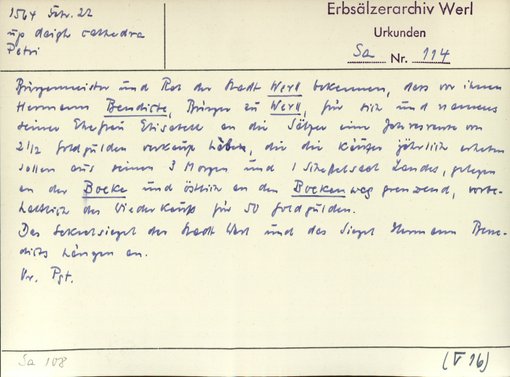 1564 Febr. 22
up daigh cathedra
Petri
Erbsälzerarchiv Werl
Urkunden
Sa Nr. 114
Bürgermeister und Rat der Stadt Werl bekennen, dass vor ihnen
Hermann Bendicte, Bürger zu Werl, für sich und namens
seiner Ehefrau Elisabeth an die Sälzer eine Jahresrente von
2 1/2 Goldgulden verkauft haben, die die Käufer jährlich erheben
sollen aus seinen 3 Morgen und 1 Scheffelsaat Landes, gelegen
an der Boeke und östlich an den Boekenweg grenzend, vorbe-
haltlich des Wiederkaufs für 50 Goldgulden.
Das Sekretsiegel der Stadt Werl und das Siegel Hermann Bene-
dicts hängen an.
Or. Pgt.
Sa 108
(V 16)